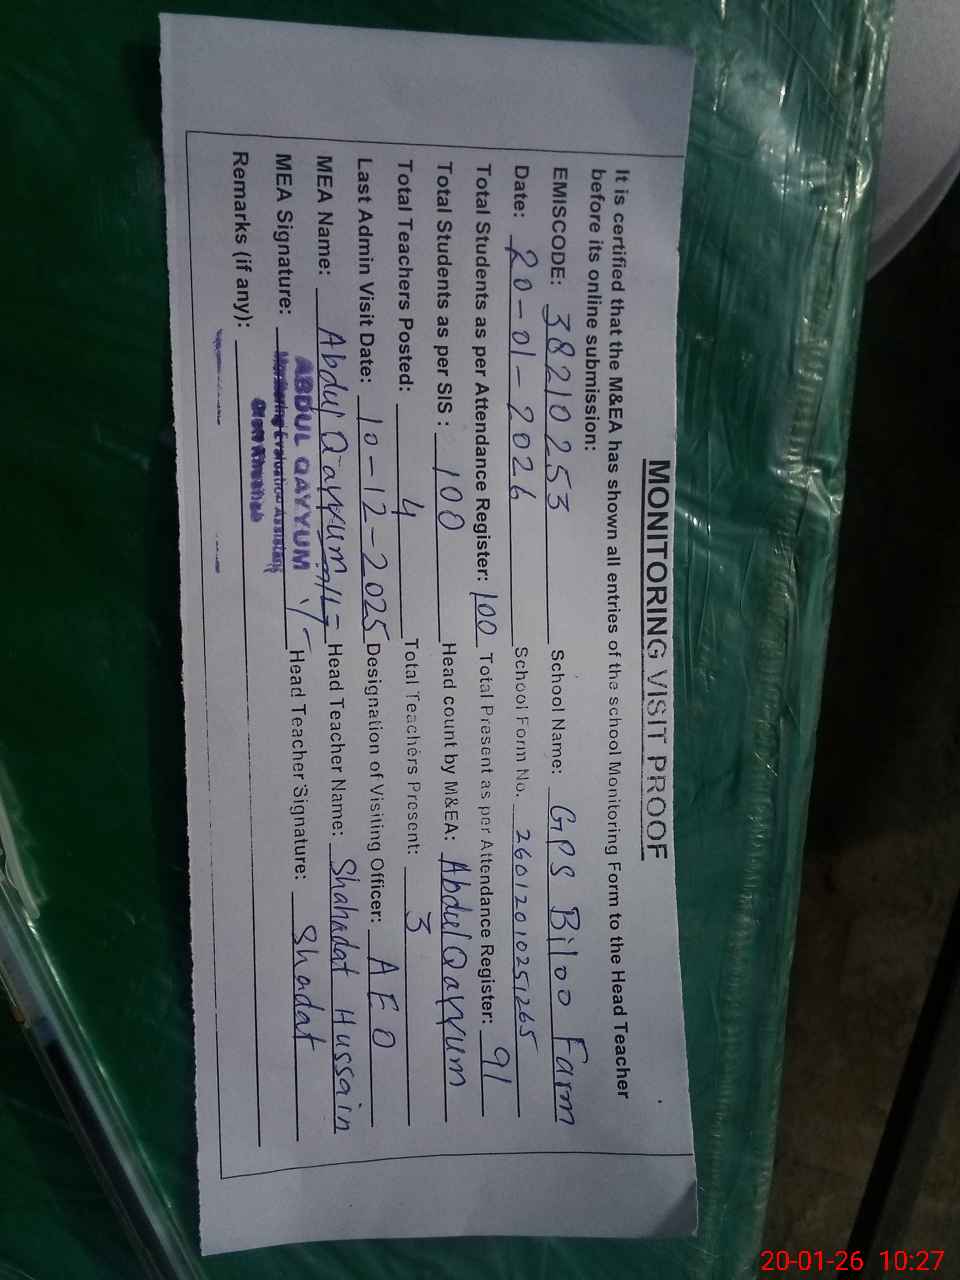 MONITORING VISIT PROOF
It is certified that the M&EA has shown all entries of the school Monitoring Form to the Head Teacher
before its online submission:
EMISCODE: 38210253 School Name: GPS Biloo Farm
Date: 20-01-2026 School Form No. 26012010251265
Total Students as per Attendance Register: 100 Total Present as per Attendance Register: 91
Total Students as per SIS : 100 Head count by M&EA: Abdul Qayyum
Total Teachers Posted: 4 Total Teachers Present: 3
Last Admin Visit Date: 10-12-2025 Designation of Visiting Officer: AEO
MEA Name: Abdul Qayyum Head Teacher Name: Shahadat Hussain
MEA Signature: Head Teacher Signature: Shadat
ABDUL QAYYUM
Monitoring Evaluation Assistant
Remarks (if any):
20-01-26 10:27